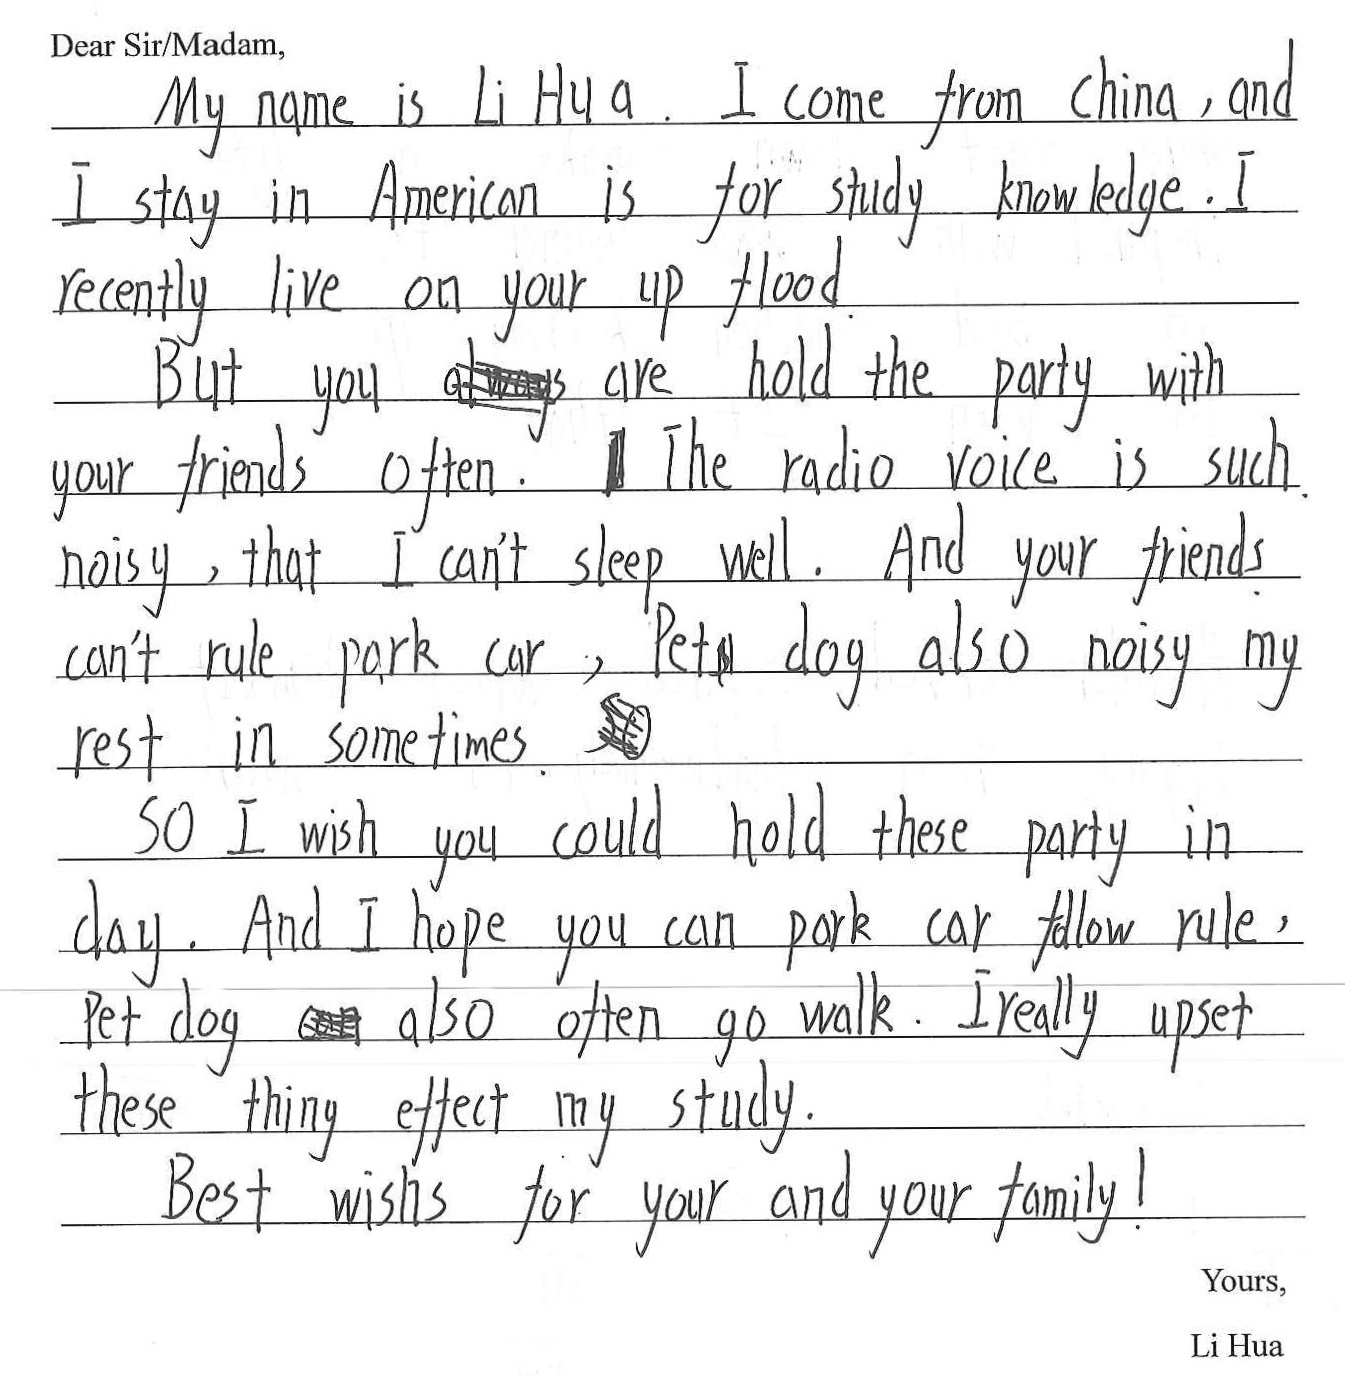 Dear Sir/Madam,
My name is Li Hua. I come from China, and
I stay in American is for study knowledge. I
recently live on your up flood.
But you are hold the party with
your friends often. The radio voice is such
noisy, that I can't sleep well. And your friends
can't rule park car, Pet dog also noisy my
rest in sometimes.
SO I wish you could hold these party in
day. And I hope you can park car follow rule,
Pet dog also often go walk. I really upset
these thing effect my study.
Best wishs for your and your family!
Yours,
Li Hua